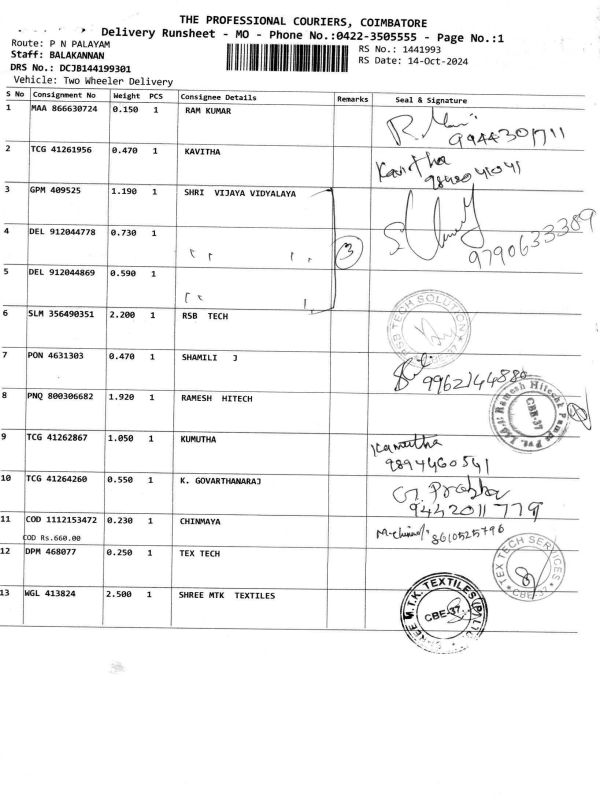 THE PROFESSIONAL COURIERS, COIMBATORE
Delivery Runsheet - MO - Phone No.:0422-3505555 - Page No.:1
Route: P N PALAYAM
RS No.: 1441993
Staff: BALAKANNAN
RS Date: 14-Oct-2024
DRS No.: DCJB144199301
Vehicle: Two Wheeler Delivery
S No Consignment No Weight PCS Consignee Details Remarks Seal & Signature
1 MAA 866630724 0.150 1 RAM KUMAR
2 TCG 41261956 0.470 1 KAVITHA Kavitha
3 GPM 409525 1.190 1 SHRI VIJAYA VIDYALAYA
9790633389
4 DEL 912044778 0.730 1 3
5 DEL 912044869 0.590 1
6 SLM 356490351 2.200 1 RSB TECH RSB TECH SOLUTION
7 PON 4631303 0.470 1 SHAMILI J
9962144880
8 PNQ 800306682 1.920 1 RAMESH HITECH Ramesh Hitecht Pumps Pvt. Ltd. CBE-37
9 TCG 41262867 1.050 1 KUMUTHA Kamutha
9894460541
10 TCG 41264260 0.550 1 K. GOVARTHANARAJ G. Prabhu
9442011779
11 COD 1112153472 0.230 1 CHINMAYA 8610525796
COD Rs.660.00
12 DPM 468077 0.250 1 TEX TECH TEX TECH SERVICES CBE-37
13 WGL 413824 2.500 1 SHREE MTK TEXTILES SHREE M.T.K. TEXTILES (P) LTD CBE-37